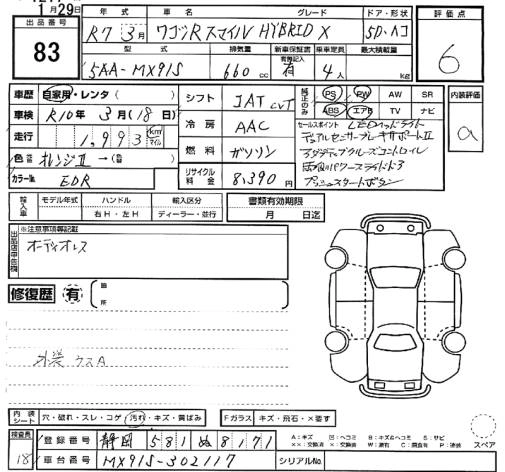 1月29日
出品番号
83
年式 車名 グレード ドア・形状
R7 3月 ワゴンRスマイル HYBRID X 5D・Aコ
型式 排気量 新車保証書 乗車定員 最大積載量
有無記入
5AA-MX91S 660 cc 有 4人 kg
評価点
6
車歴 自家用・レンタ ( )
車検 R10年 3月(18日)
走行 1,993 km マイル
色 オレンジII → (色)
カラー№ EDR
シフト JAT CVT
冷房 AAC
燃料 ガソリン
リサイクル料金 8,390円
純正のみ
PS PW AW SR
ABS エアB TV ナビ
内装評価
a
セールスポイント LEDヘッドライト
デュアルセンサーブレーキサポートII
アダプティブクルーズコントロール
両側パワースライドドア
プッシュスタートボタン
輸入車 モデル年式 ハンドル 輸入区分
年 右H・左H ディーラー・並行
書類有効期限
月 日迄
出品店申告欄
※注意事項等記載
オーディオレス
修復歴 有 箇所
外装 ウスA
内装シート 穴・破れ・スレ・コゲ・汚れ・キズ・黄ばみ
Fガラス キズ・飛石・×要す
検査員
18
登録番号 静岡 581 ぬ 8171
車台番号 MX91S-302117
シリアルNo.
A:キズ
スペア